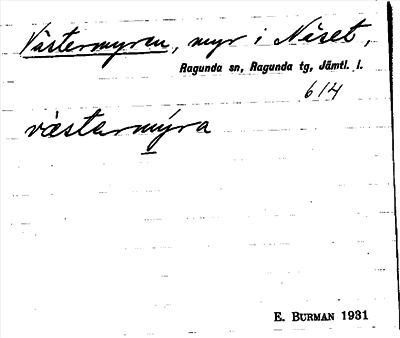 Västermyren, myr i Näset,
Ragunda sn, Ragunda tg, Jämtl. l.
614
västermýra
E. BURMAN 1931